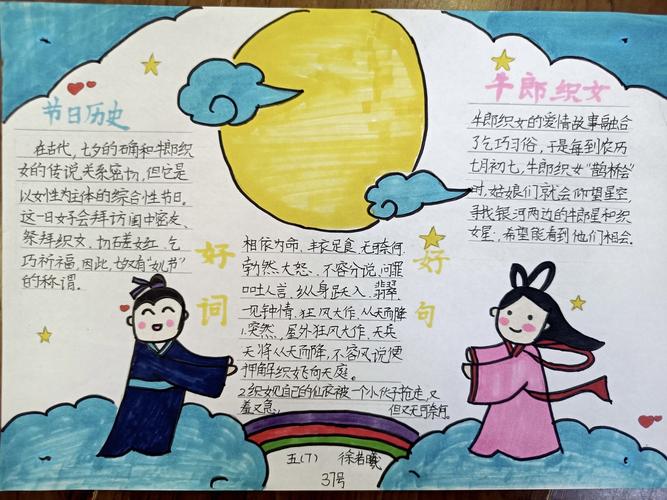 节日历史
在古代,七夕的确和牛郎织
女的传说关系密切,但它是
以女性为主体的综合性节日。
这一日女子会拜访闺中密友、
祭拜织女、切磋女红、乞
巧祈福。因此,七夕又有“女儿节”
的称谓。
好词
相依为命、丰衣足食、无可奈何、
勃然大怒、不容分说、问罪
口吐人言、纵身跃入、翡翠、
一见钟情、狂风大作、从天而降
好句
1.突然,屋外狂风大作,天兵
天将从天而降,不容分说便
押解织女飞向天庭。
2.织女见自己的仙衣被一个小伙子抢走,又
羞又急,但又无可奈何。
牛郎织女
牛郎织女的爱情故事融合
了乞巧习俗,于是每到农历
七月初七,牛郎织女“鹊桥会”
时,姑娘们就会仰望星空,
寻找银河两边的牛郎星和织
女星,希望能看到他们相会。
五(7) 徐若曦
37号